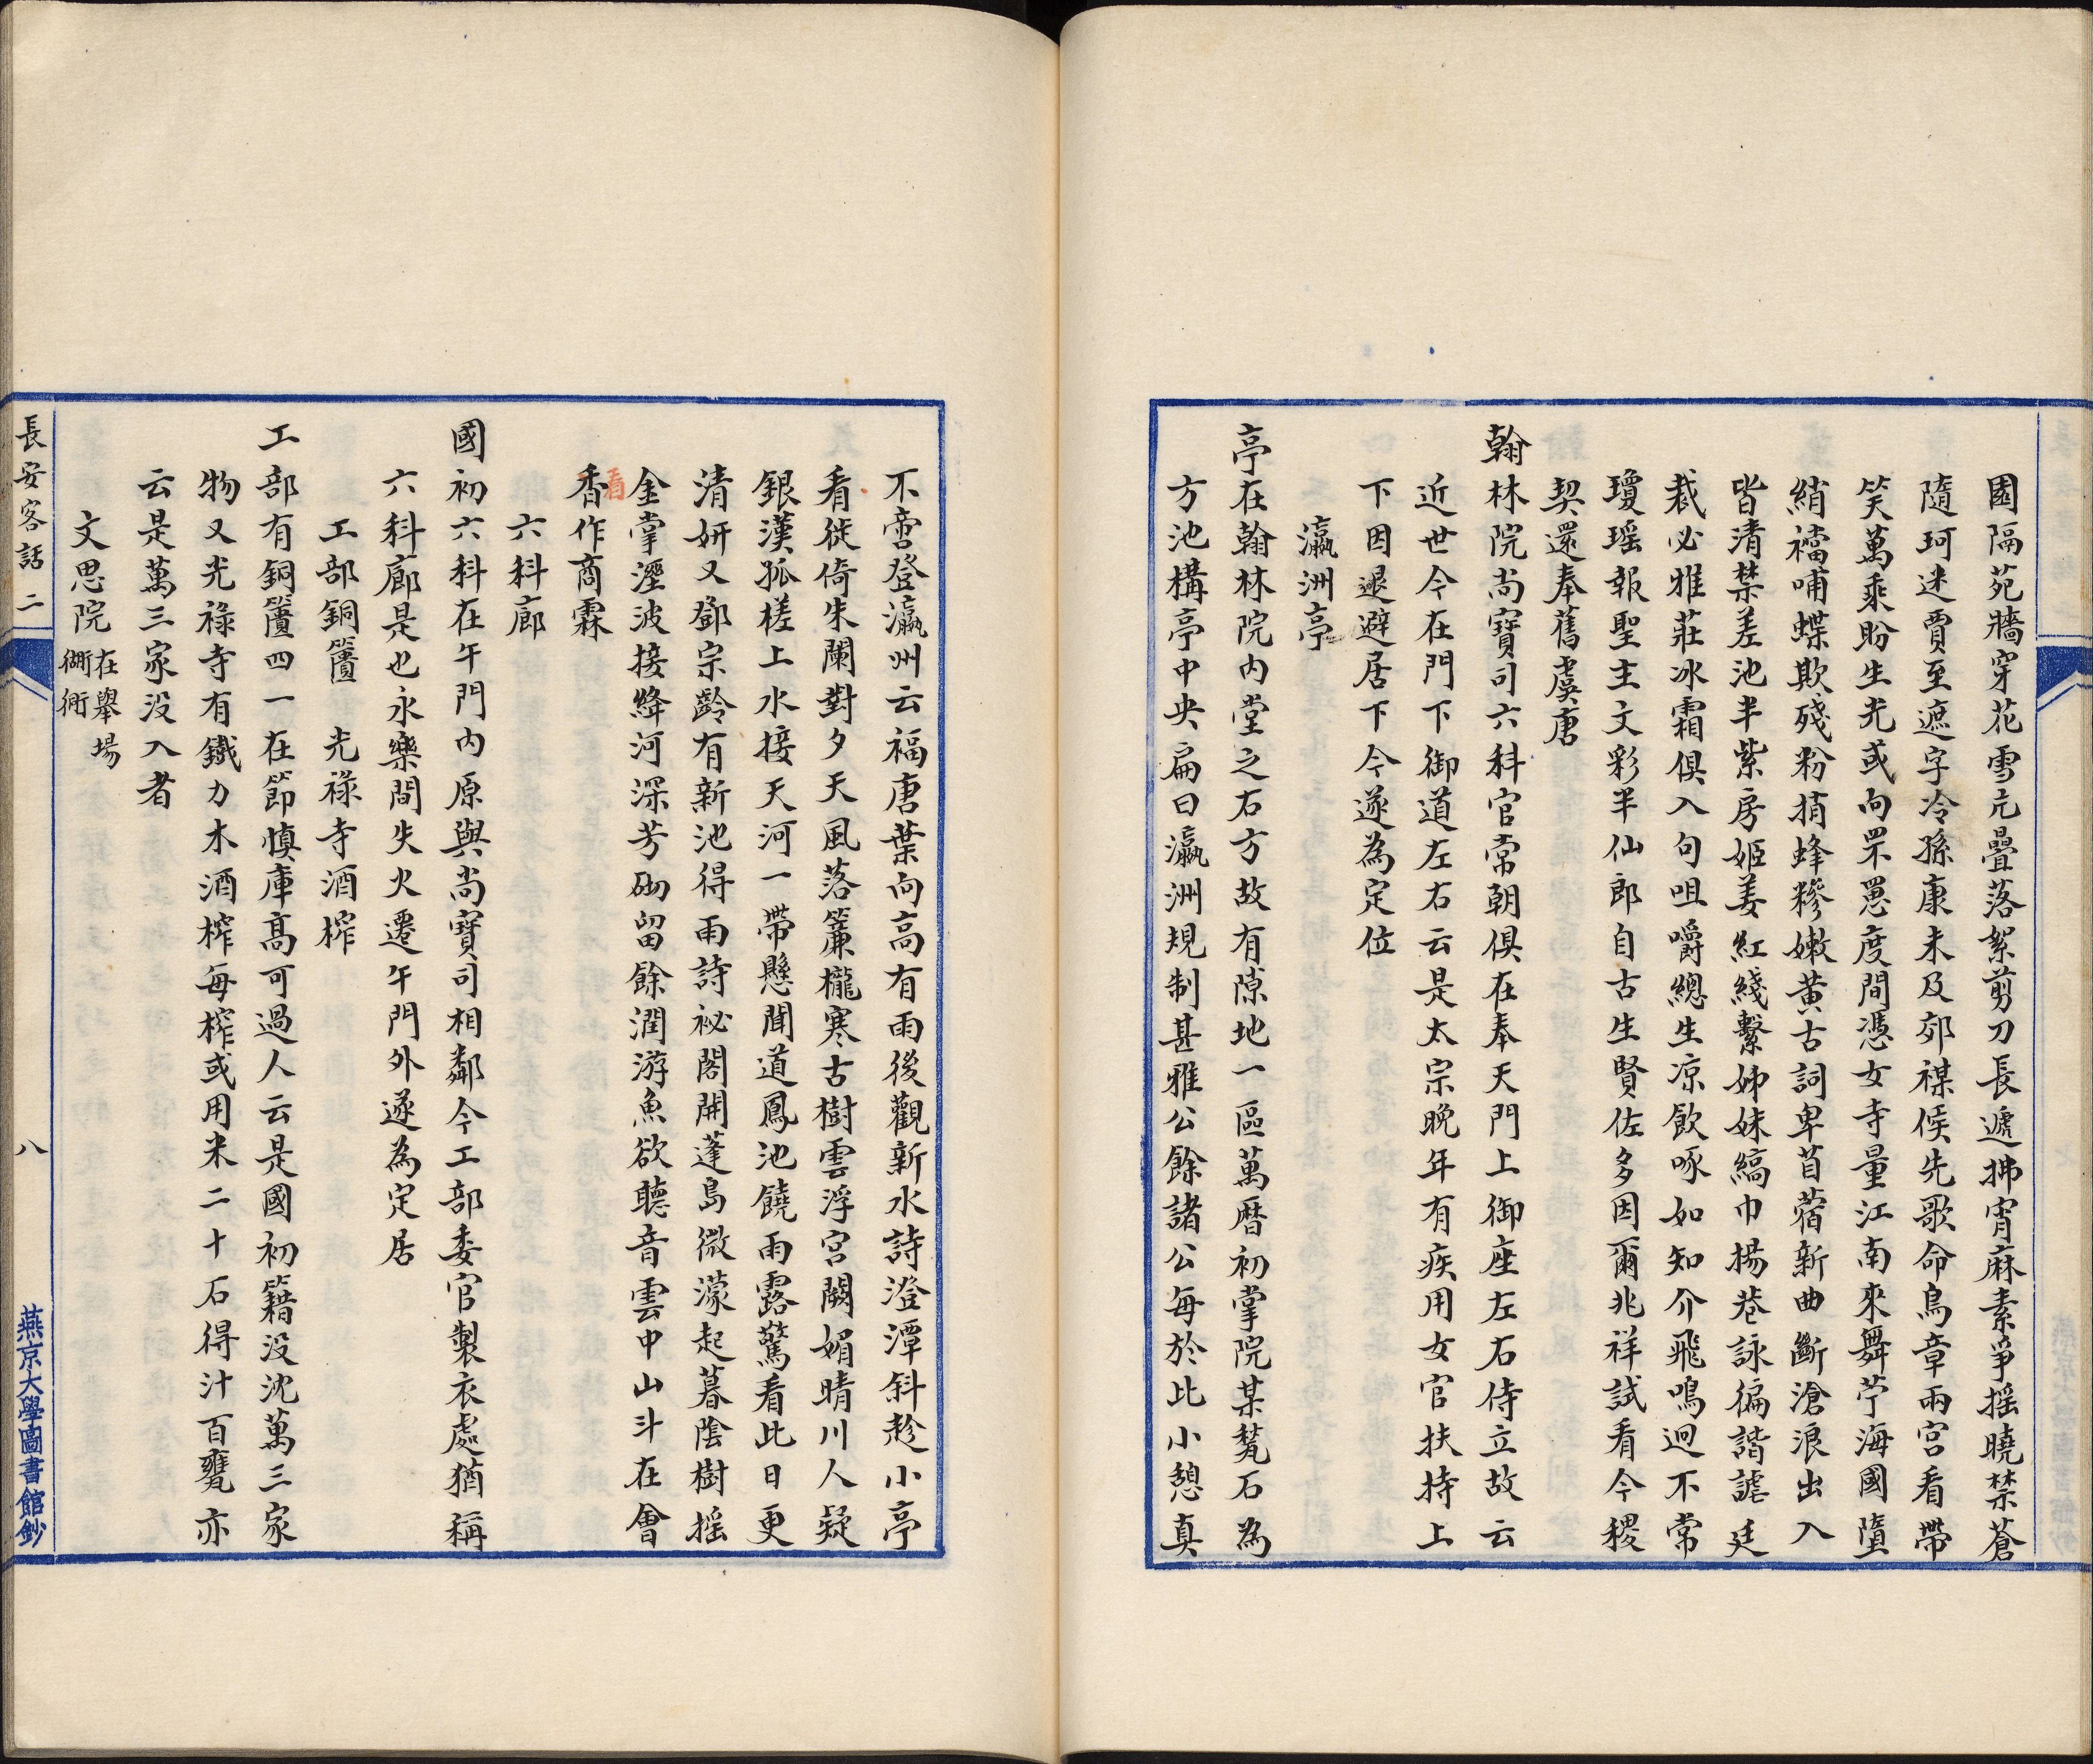 園隔苑牆穿花雪亢疊落絮剪刀長遞拂宵麻素爭摇曉禁蒼
隨珂迷賈至遮字冷孫康未及郊禖候先歌命鳥章兩宮看帶
笑萬乘盼生光或向罘罳度間憑女寺量江南來舞苧海國墮
綃襠哺蝶欺殘粉捎蜂糝嫩黄古詞卑苜蓿新曲斷滄浪出入
皆清禁差池半紫房姬姜紅綫繫姊妹縞巾揚巷詠徧諧謔廷
裁必雅莊冰霜俱入句咀嚼總生凉飲啄如知介飛鳴迥不常
瓊瑶報聖主文彩半仙郎自古生賢佐多因爾兆祥試看今稷
契還奉舊虞唐
翰林院尚寶司六科官常朝俱在奉天門上御座左右侍立故云
近世今在門下御道左右云是太宗晚年有疾用女官扶持上
下因退避居下今遂為定位
瀛洲亭
亭在翰林院内堂之右方故有隙地一區萬曆初掌院某甃石為
方池構亭中央扁曰瀛洲規制甚雅公餘諸公每於此小憩真
不啻登瀛州云福唐葉向高有雨後觀新水詩澄潭斜趁小亭
看徙倚朱闌對夕天風落簾櫳寒古樹雲浮宮闕媚晴川人疑
銀漢孤槎上水接天河一帶懸聞道鳳池饒雨露驚看此日更
清妍又鄧宗齡有新池得雨詩祕閣開蓬島微濛起暮陰樹摇
金掌溼波接絳河深芳砌留餘潤游魚欲聽音雲中山斗在會
看
香作商霖
六科廊
國初六科在午門内原與尚寶司相鄰今工部委官製衣處猶稱
六科廊是也永樂間失火遷午門外遂為定居
工部銅簠 光祿寺酒榨
工部有銅簠四一在節慎庫高可過人云是國初籍没沈萬三家
物又光祿寺有鐵力木酒榨每榨或用米二十石得汁百甕亦
云是萬三家没入者
文思院 在舉場
衚衕
長安客話 二
八
燕京大學圖書館鈔